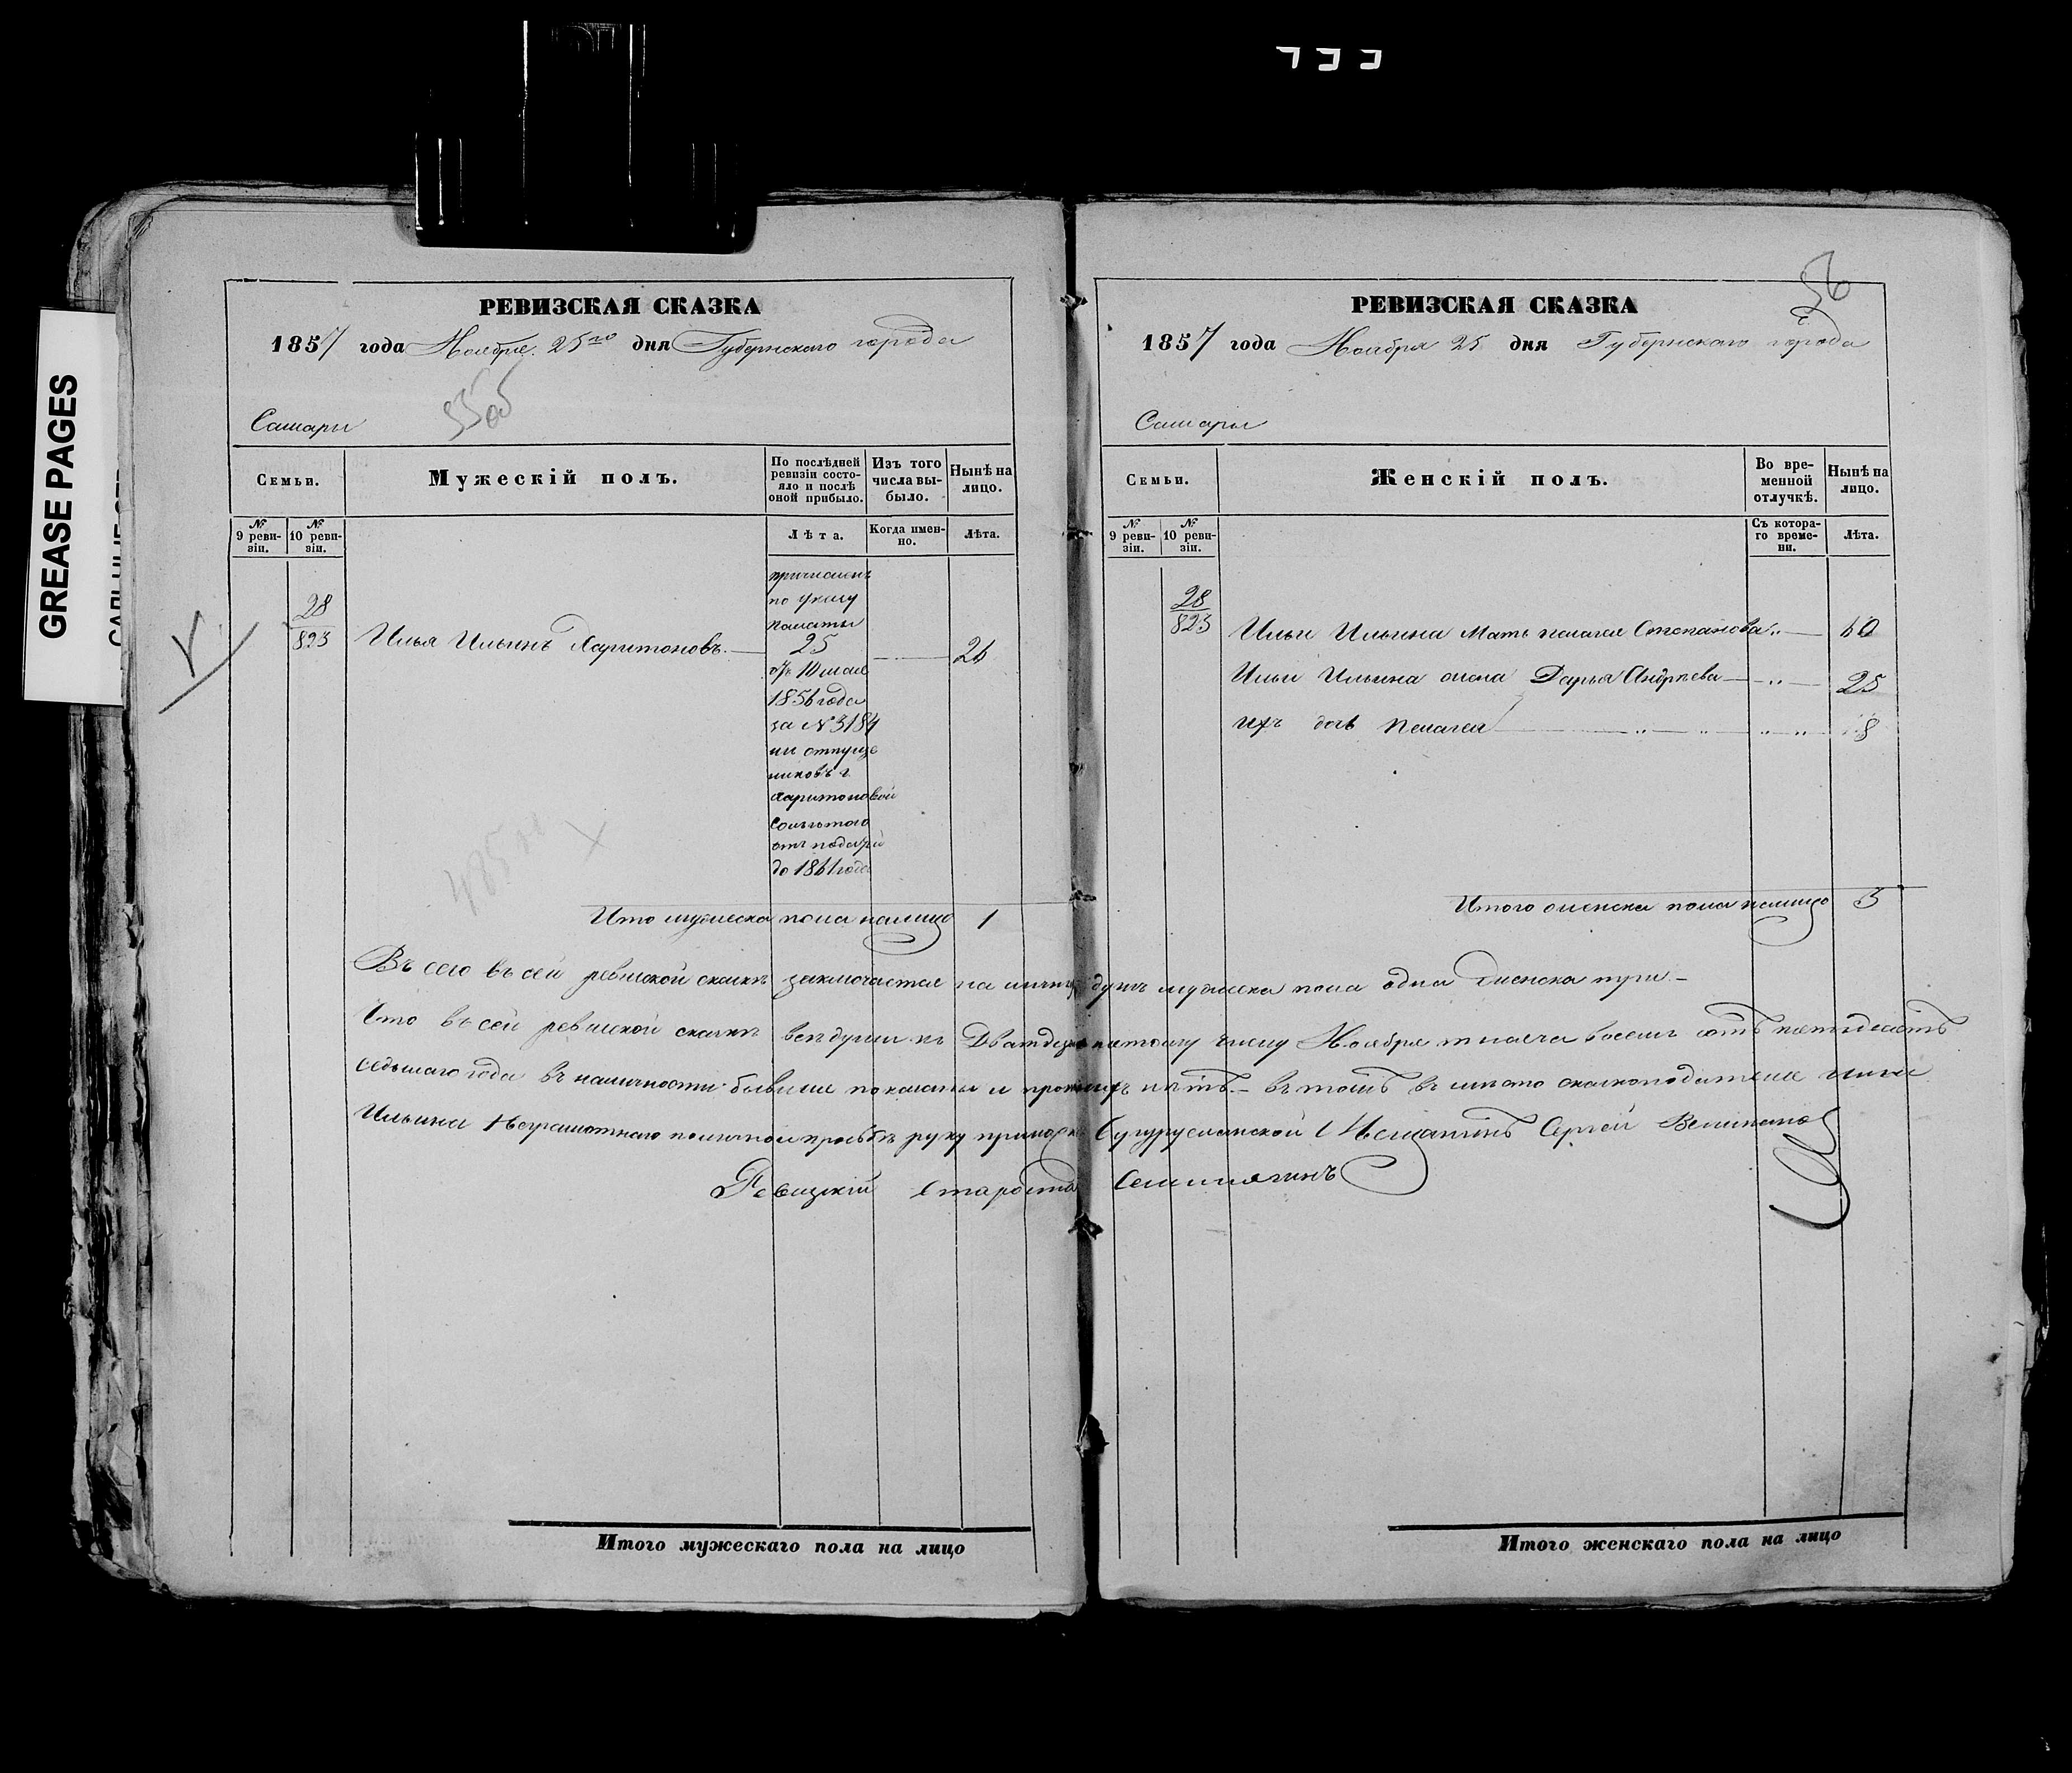 GREASE PAGES
РЕВИЗСКАЯ СКАЗКА
1857 года Ноября 25го дня Губернскаго города
Самары
35об
Семьи.
Мужескій полъ.
По послѣдней ревизіи состояло и послѣ оной прибыло.
Изъ того числа выбыло.
Нынѣ на лицо.
№ 9 ревизіи.
№ 10 ревизіи.
Лѣта.
Когда именно.
Лѣта.
28
823
Илья Ильинъ Харитоновъ
причисленъ
по указу
палаты
25
отъ 10 мая
1856 года
за № 3184
изъ отпуще
никовъ г
Харитоновой
со льготою
отъ податей
до 1861 года
26
Итого мужеска пола налицо 1
РЕВИЗСКАЯ СКАЗКА
36
1857 года Ноября 25 дня Губернскаго города
Самары
Семьи.
Женскій полъ.
Во временной отлучкѣ.
Нынѣ на лицо.
№ 9 ревизіи.
№ 10 ревизіи.
Съ котораго времени.
Лѣта.
28
823
Ильи Ильина мать Пелагея Степанова 60
Ильи Ильина жена Дарья Андрѣева 25
ихъ дочь Пелагея 8
Итого женска пола налицо 3
Въ сего въ сей ревиской сказкѣ заключается на личную душъ мужеска пола одна женска три
Что въ сей ревиской сказкѣ всѣ души къ Дватдцать пятому числу Ноября тысяча восемь сотъ пятьдесятъ
седьмаго года въ наличности бывшие показаны и прописныхъ нѣтъ въ томъ въ мѣсто сказкоподателя Ильи
Ильина Неграмотнаго по личной прозьбѣ руку приложилъ Бугурусланской Мещанинъ Сергей Великанов
Ревизкій Староста Семилягинъ
Итого мужескаго пола на лицо
Итого женскаго пола на лицо